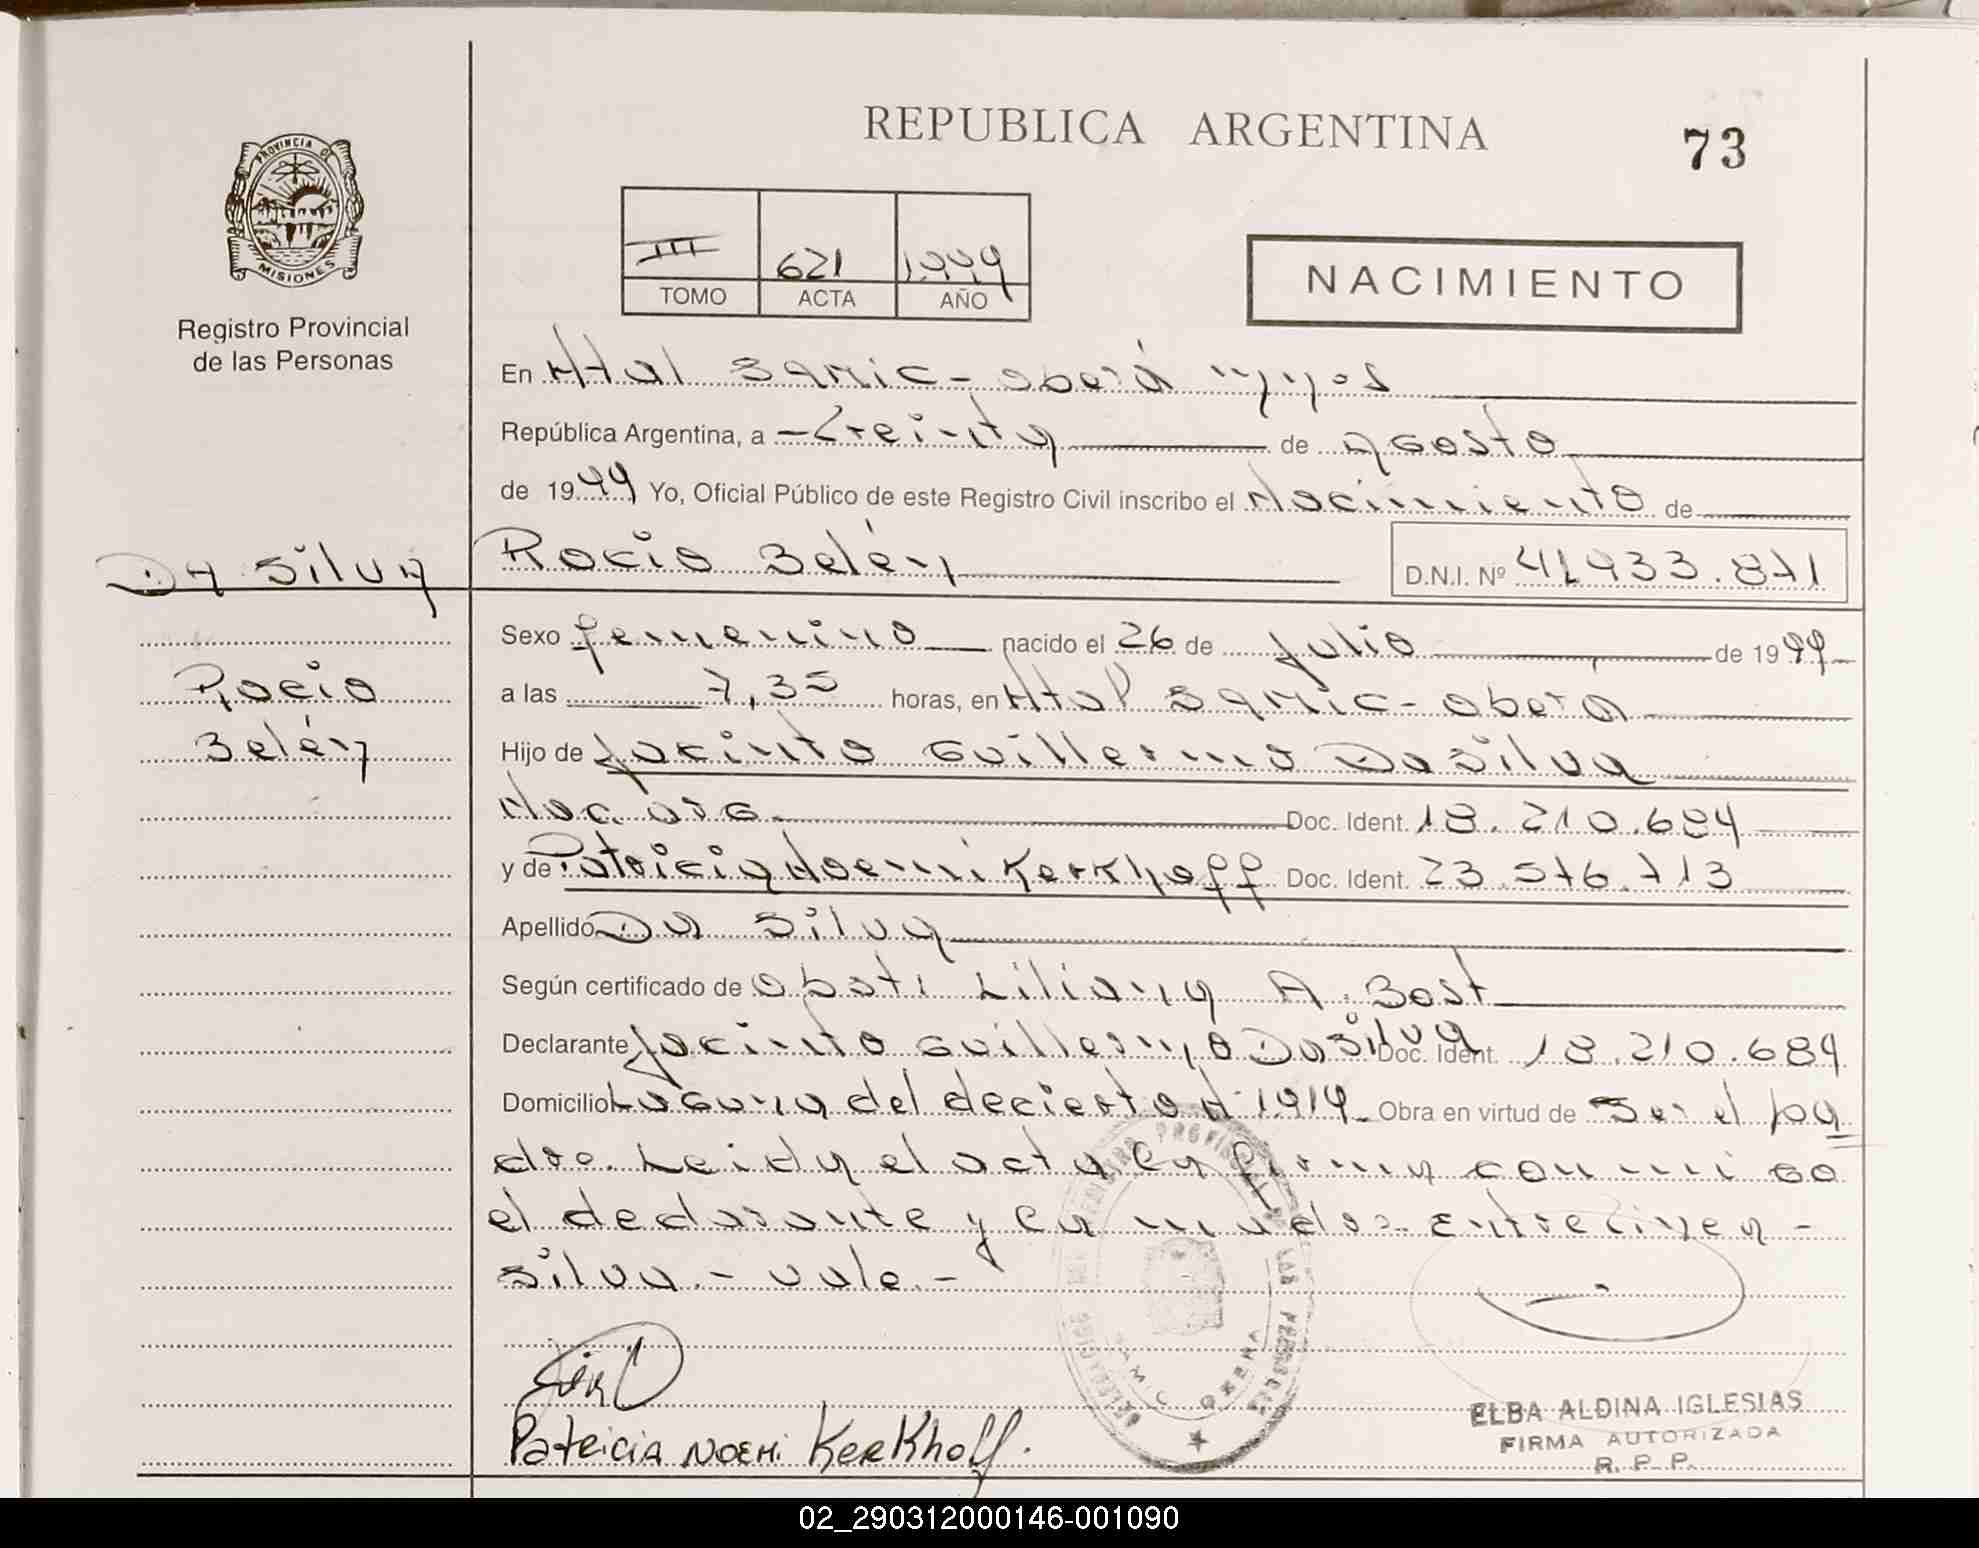 REPUBLICA ARGENTINA
73
PROVINCIA DE
MISIONES
Registro Provincial
de las Personas
III 621 1.999
TOMO ACTA AÑO
NACIMIENTO
En Htal Samic - oberá
República Argentina, a - treinta de agosto
de 1999 Yo, Oficial Público de este Registro Civil inscribo el Nacimiento de
Da Silva Rocio Belén D.N.I. Nº 41.933.871
Sexo femenino nacido el 26 de julio de 1999
Rocio
a las 7,35 horas, en Htal Samic - oberá
Belén
Hijo de Jacinto Guillermo Da Silva
Nac. arg. Doc. Ident. 18.210.684
y de Patricia Noemi Kerkhoff Doc. Ident. 23.576.713
Apellido Da Silva
Según certificado de obst. Liliana A. Bast
Declarante Jacinto Guillermo Da Silva Doc. Ident. 18.210.684
Domicilio Laguna del decierto N° 1914 Obra en virtud de Ser el pa
dre. Leida el acta la firma con mi go
el declarante y la madre. Entrelinea -
Silva. - vale. -
Patricia Noemi Kerkhoff.
ELBA ALDINA IGLESIAS
FIRMA AUTORIZADA
R. P. P.
02_290312000146-001090